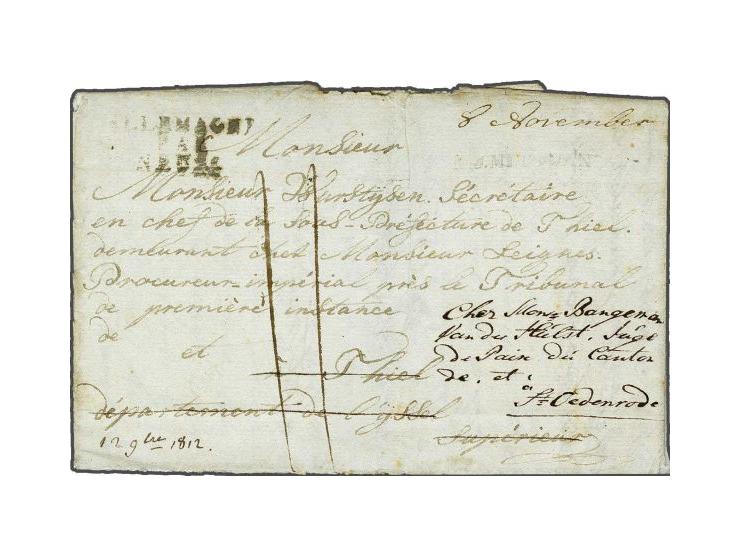 8 November
ALLEMAGNE
PAR
Monsieur
Monsieur Wurstysen. Sécrétaire
en chef de la Sous-Préfecture de Thiel.
demeurant chez Monsieur Leignes.
Procureur-impérial près le Tribunal
de première instance
de
et
à Thiel
département de l'yssel
Supérieur
Cher Monsr Bangeman
Van der Hülst, Juge
de Paix du Canton
de, et
à
St Oedenrode
12 9bre 1812.